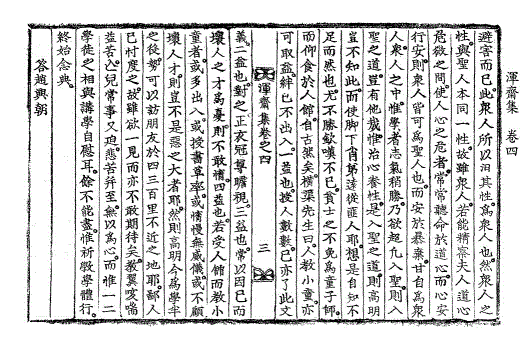 渾齋集 卷四
避害而已此衆人所以汩其性爲衆人也然衆人之
性與聖人本同一性故雖衆人若能精察夫人道心
危微之間使人心之危者常常聽命於道心而心安
行安則衆人皆可爲聖人也而安於暴棄甘自爲衆
人衆人之中惟學者志氣稍勝乃欲超凡入聖則入
聖之道豈有他哉惟治心養性是入聖之道則高明
豈不知此而使脚下肯從匪人耶想是自知不
足而然也尤不勝欽嘆不已貧士之不免爲童子師
而仰食於人館自古矣橫渠先生曰人敎小童亦
可取益絆已不出入一益也授人數數已亦了此文
渾齋集卷之四 三
義二益也對之正衣冠尊瞻視三益也常以因已而
壞人才爲憂則不敢惰四益也若受人館而敎小
童者或多出入或授書草率或惰慢無威儀或不顧
壞人才則豈不是惡之大者耶然則高明今爲學半
之後勢可以訪朋友於四三百里不近之地耶鄙人
已忖度之故雖欲一見而亦不敢期待矣敎翼喑
益苦亾兒常事又迫悲苦并至無以爲心而惟一二
學徒之相與講學自慰耳餘不能盡惟祈斅學體行
終始念典
答趙興朝